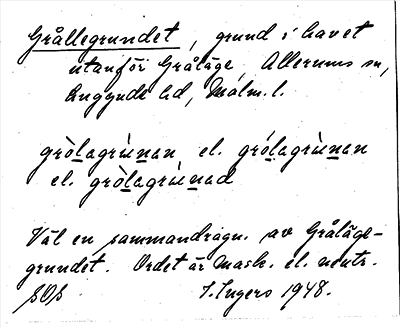 Grållegrundet, grund i havet
utanför Gråläge, Allerums sn,
Luggude hd, Malm. l.
gròlagrùnan el. grólagrùnan
el. gròlagrùnad
Väl en sammandragn. av Gråläge-
grundet. Ordet är mask. el. neutr.
SOS I. Ingers 1948.